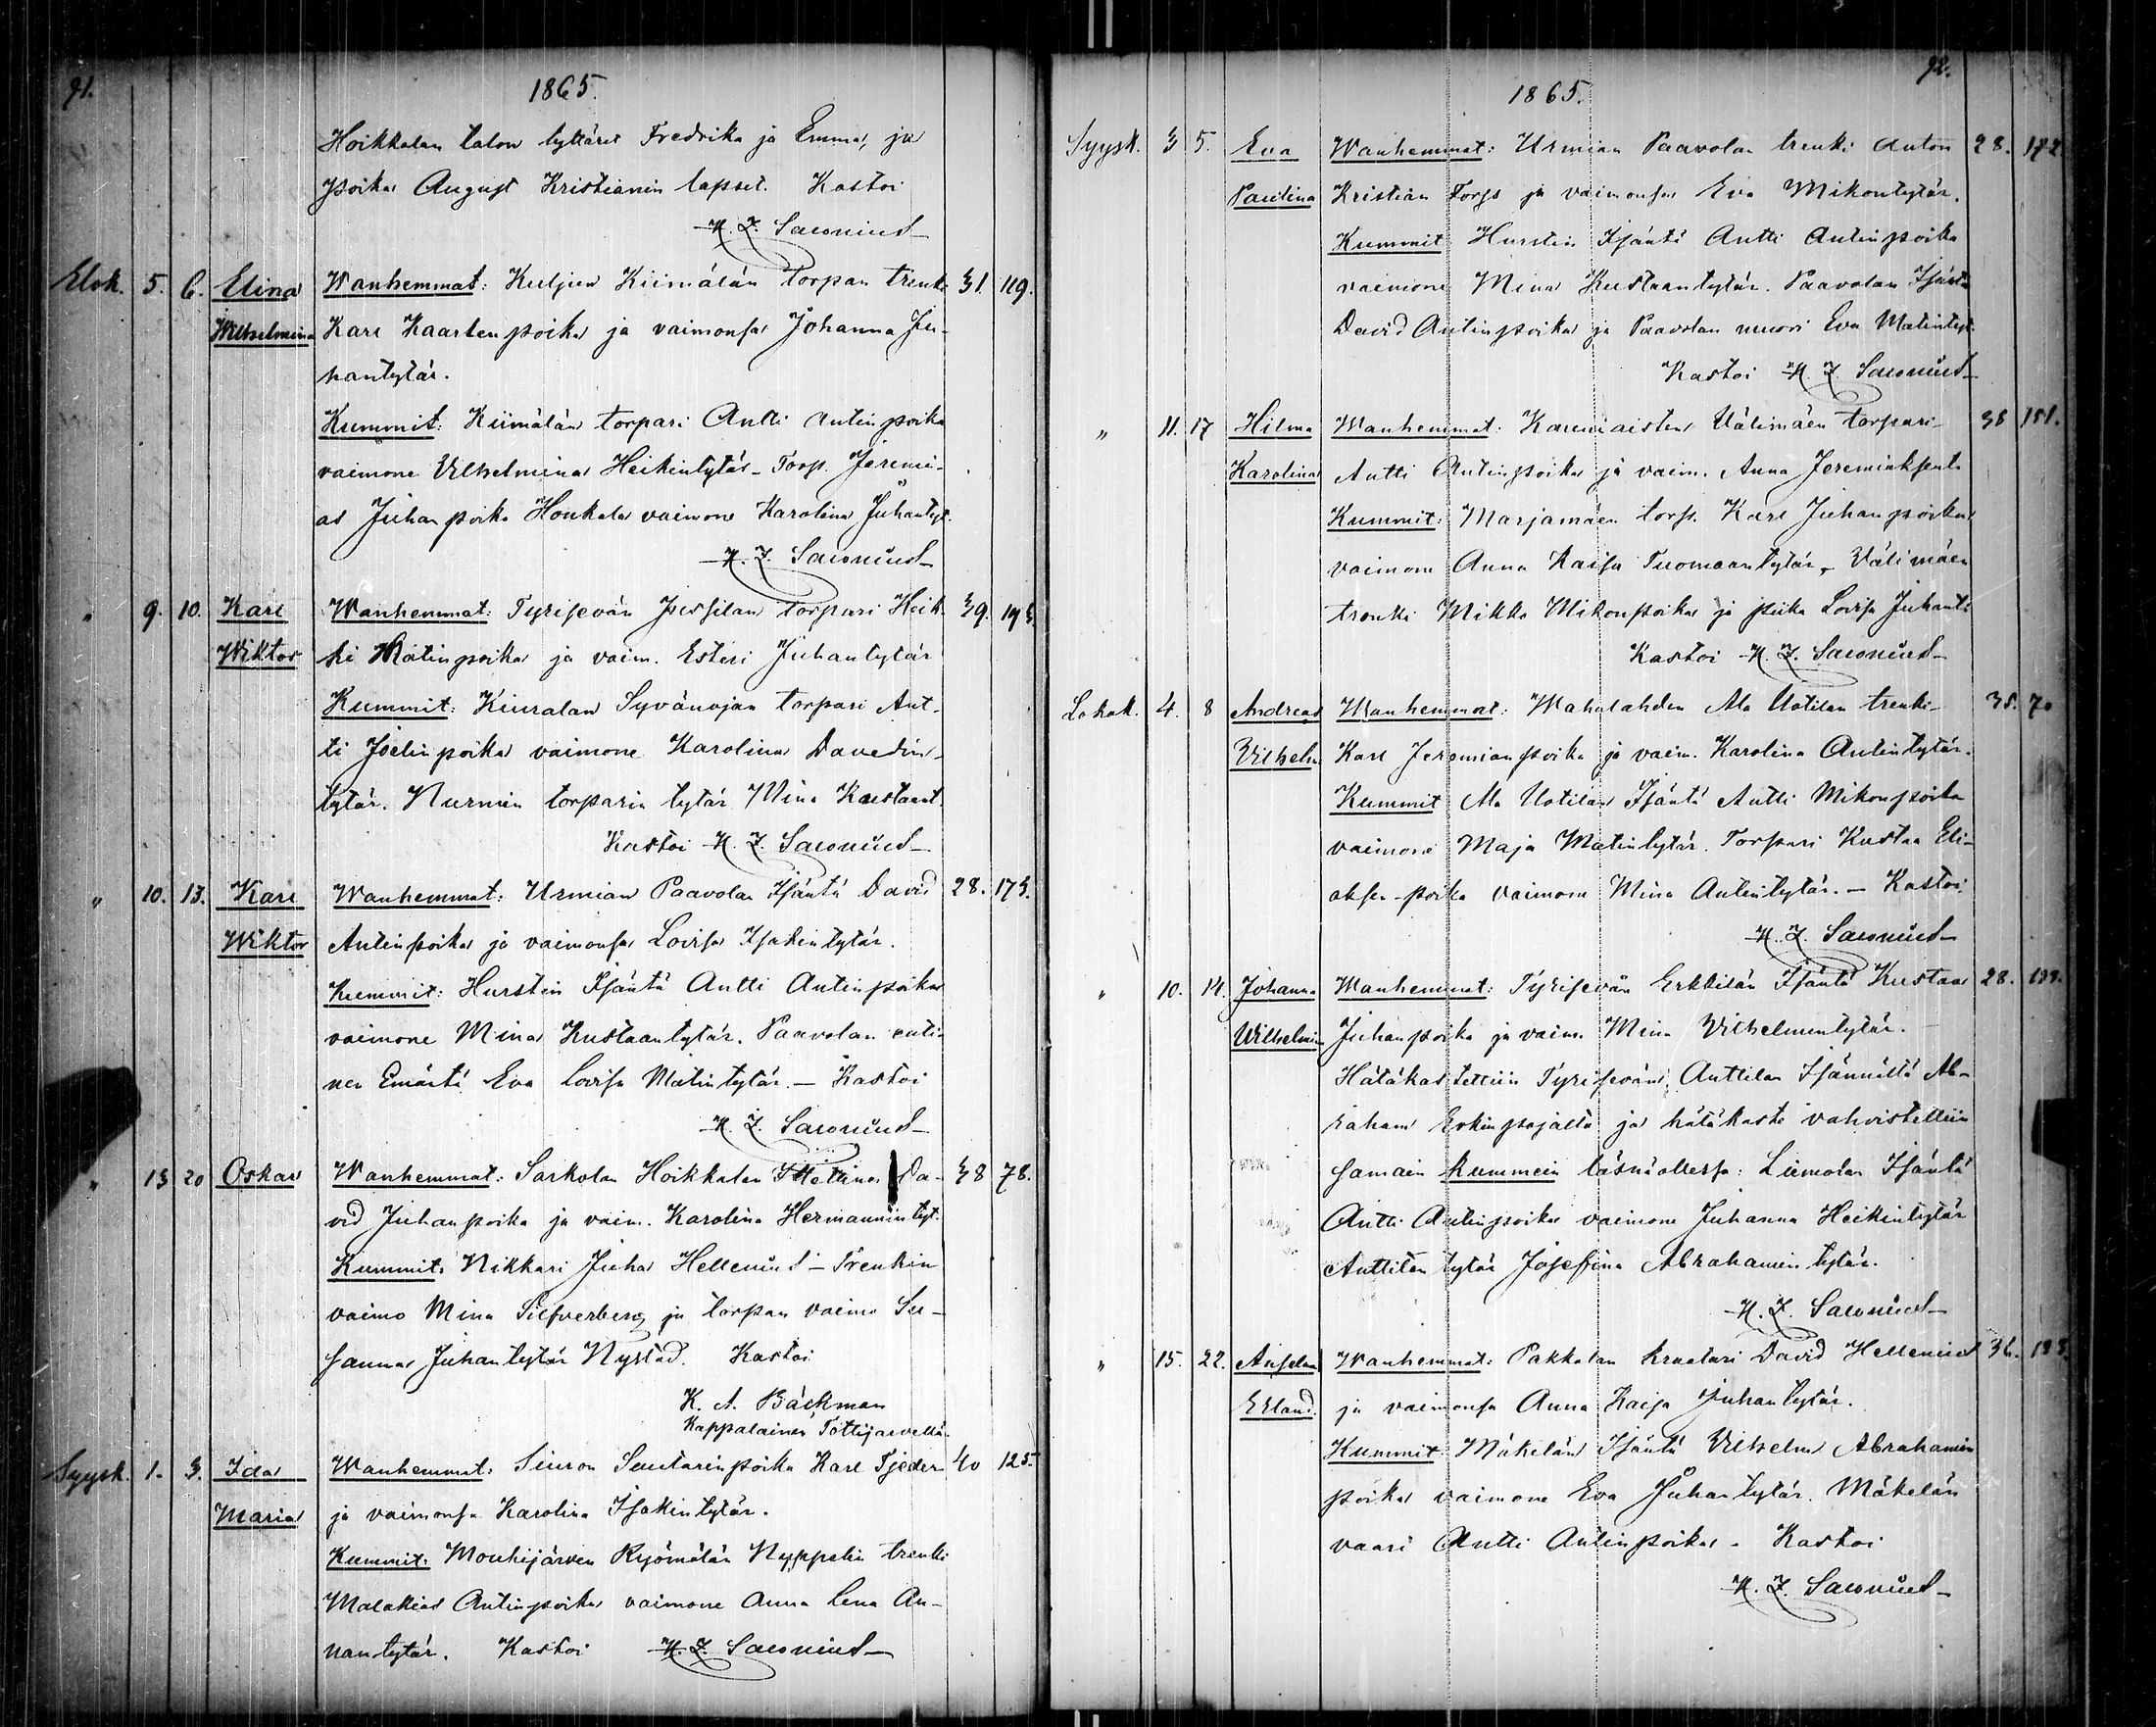 91.
1865.
Hoikkalan talon tyttäret Fredrika ja Emma, ja
poika August Kristianin lapset. Kastoi
Elok. 5. 6. Elina Wanhemmat: Kuljun Kiimälän torpan trenki 31. 119.
Wilhelmina Karl Kaarlenpoika ja vaimonsa Johanna Ju-
hantytär.
Kummit: Kiimälän torpari Antti Antinpoika
vaimone Vilhelmina Heikintytär - Torp. Jeremi-
as Juhanpoika Honkala vaimone Karolina Juhantyt.
" 9. 10. Karl Wanhemmat: Tyrisevän torpari Heik- 39. 193.
Wiktor ki Matinpoika ja vaim. Esteri Juhantytär
Kummit: Kiuralan Syvänojan torpari Ant-
ti Joelinpoika vaimone Karolina Davidin-
tytär. Nurmin torparin tytär Mina Kustaant.
Kastoi
" 10. 13. Karl Wanhemmat: Urmian Paavolan Isäntä David 28. 173.
Wiktor Antinpoika ja vaimonsa Lovisa Isakintytär.
Kummit: Hurstin Isäntä Antti Antinpoika
vaimone Mina Kustaantytär. Paavolan enti-
nen Emäntä Eva Lovisa Matintytär. — Kastoi
" 13 20 Oskar Wanhemmat: Sarkolan Hoikkalan Da- 38 78.
vid Juhanpoika ja vaim. Karolina Hermannintyt.
Kummit: Nikkari Juha Hellenius - Trenkin
vaimo Mina Silfverberg ja torpan vaimo Su-
sanna Juhantytär Nystad. Kastoi
K. A. Bäckman
Kappalainen Tottijärvellä.
Syysk. 1. 3. Ida Wanhemmat: Siuron Suutarinpoika Karl Tjeder 40 125.
Maria ja vaimonsa Karolina Isakintytär.
Kummit: Mouhijärven Ryömälän Nyppelin trenki
Malakias Antinpoika vaimone Anna Lena An-
nantytär. Kastoi
92.
1865.
Syysk. 3 5. Eva Wanhemmat: Urmian Paavolan trenki Anton 28. 172
Paulina Kristian Forss ja vaimonsa Eva Mikontytär.
Kummit Hurstin Isäntä Antti Antinpoika
vaimone Mina Kustaantytär. Paavolan Isäntä
David Antinpoika ja Paavolan muori Eva Matintyt.
Kastoi
" 11. 17 Hilma Wanhemmat: Kauniaisten Välimäen torpari 38 151.
Karolina Antti Antinpoika ja vaim. Anna Jeremiaksent.
Kummit: Marjamäen torp. Karl Juhanpoika
vaimone Anna Kaisa Tuomaantytär, Välimäen
trenki Mikko Mikonpoika ja piika Lovisa Juhant.
Kastoi
Lokak. 4. 8 Andreas Wanhemmat: Mahalahden Ala Uotilan trenki 38. 70
Vilhelm Karl Jeremianpoika ja vaim. Karolina Antintytär.
Kummit Ala Uotilan Isäntä Antti Mikonpoika
vaimone Maja Matintytär. Torpari Kustaa Eli-
aksenpoika vaimone Mina Antintytär. — Kastoi
" 10. 14. Johanna Wanhemmat: Tyrisevän Erkkilän Isäntä Kustaa 28.
Wilhelmin Juhanpoika ja vaim. Mina Vilhelmintytär.
Hätäkastettiin Tyrisevän Anttilan Isännältä Ab-
raham Erkinpojalta ja hätäkaste vahvistettiin
samain kummein läsnäollessa: Liemolan Isäntä
Antti Antinpoika vaimone Juhanna Heikintytär
Anttilan tytär Josefina Abrahamintytär.
" 15. 22. Anselm Wanhemmat: Pakkalan kraatari David Hellenius 36.
Erland. ja vaimonsa Anna Kaisa Juhantytär.
Kummit: Mäkelän Isäntä Vilhelm Abrahamin
poika vaimone Eva Juhantytär. Mäkelän
vaari Antti Antinpoika. Kastoi